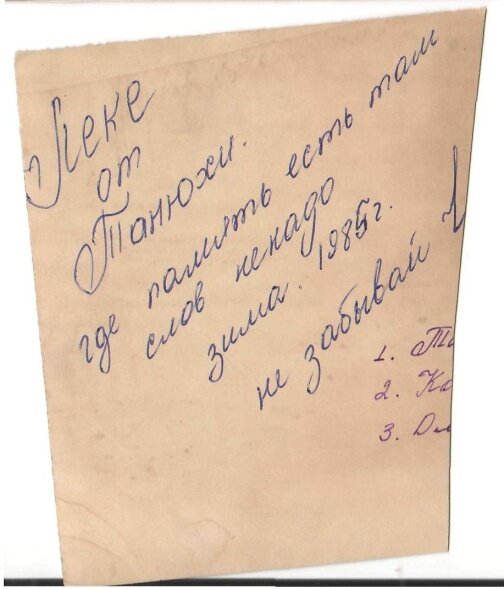 Леке
от
Танюхи.
где память есть там
слов ненадо
зима. 1985г.
не забывай
1. Та
2. Ка
3.